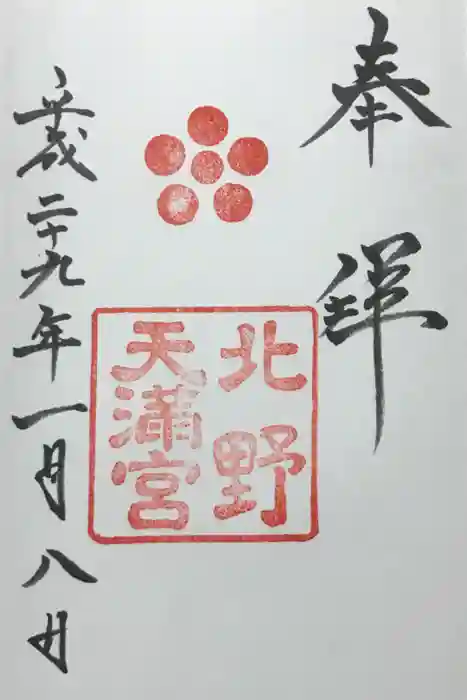 奉拝
北野
天満宮
平成二十九年一月八日